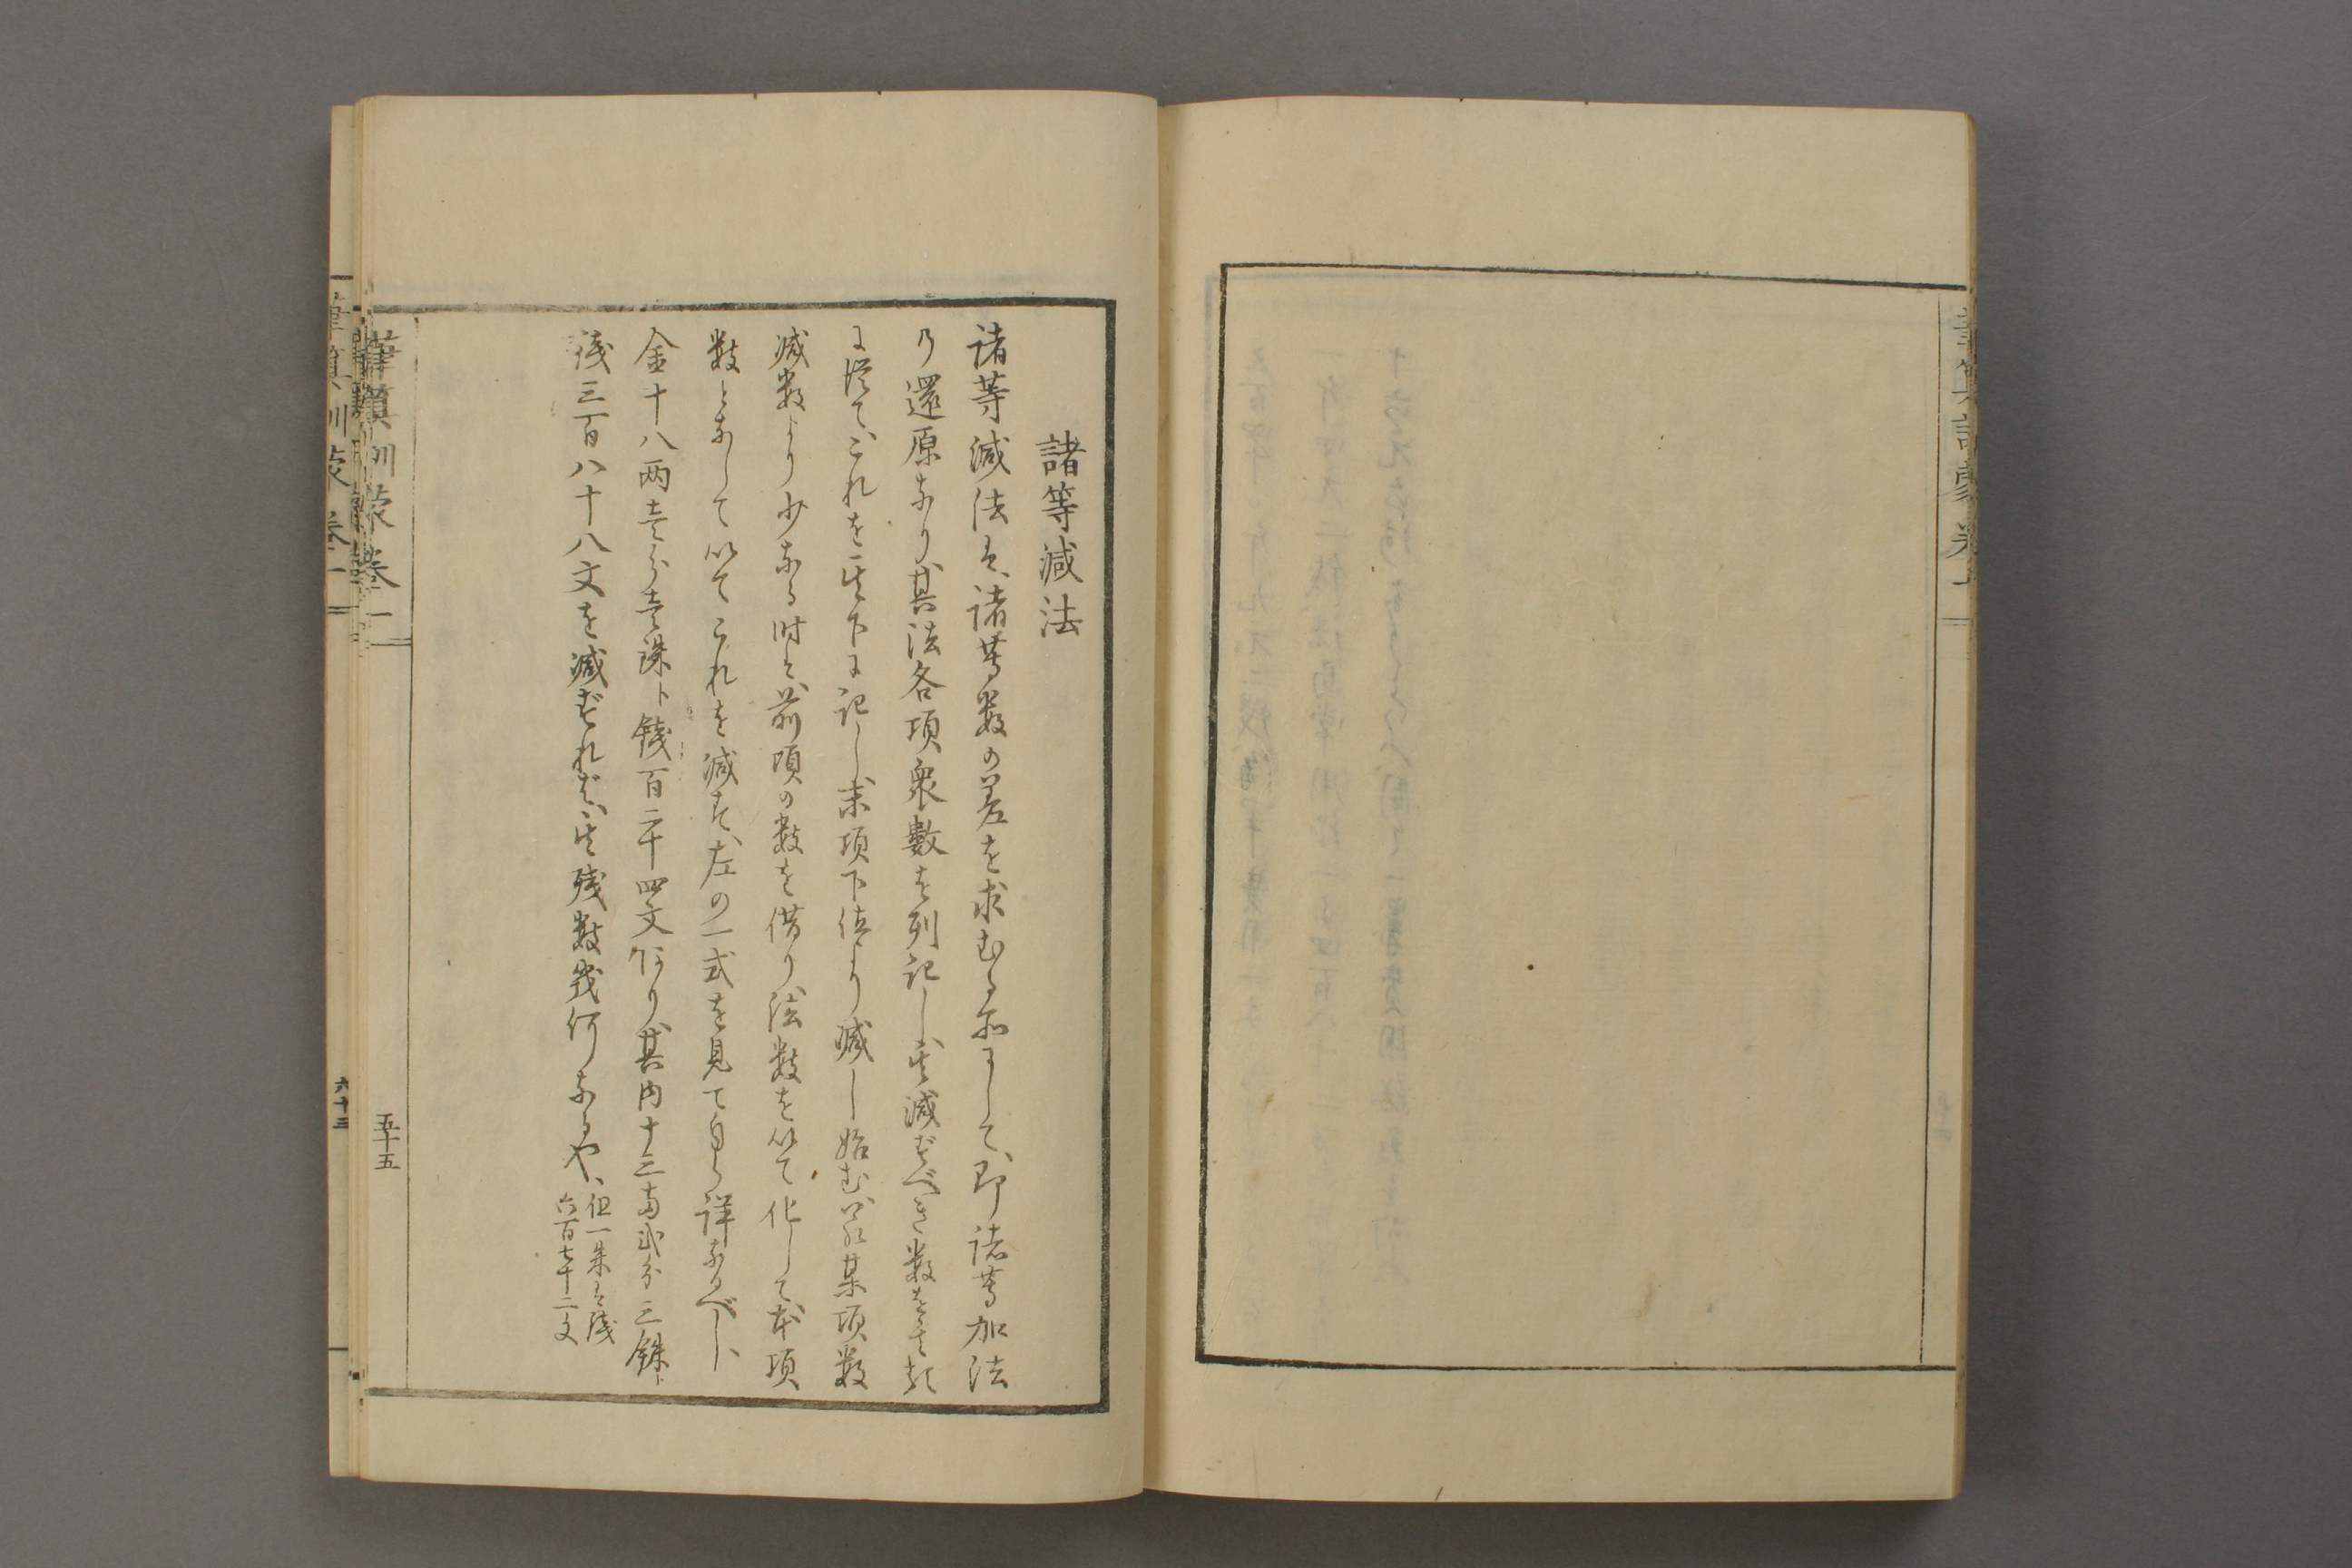 諸等減法
諸等減法は、諸等数の差を求むる所にして、即諸等加法
の還原なり、其法各項衆數を列記し、其減ずべき数を其類
に従て、これを其下に記し、末項下位より減し始む、若某項数
減数より少なる時は、前項の数を借り、法数を以て化して本項
数となして以てこれを減ず、左の一式を見て自ら詳なるべし、
金十八両壱分壱銖ト錢百二十四文あり、其内十三両弐分三銖ト
錢三百八十八文を減ずれば、其残数幾何なるや、
但一朱は錢
六百七十二文
筆算訓蒙 卷一
五十五
筆算訓蒙 卷一
六十三